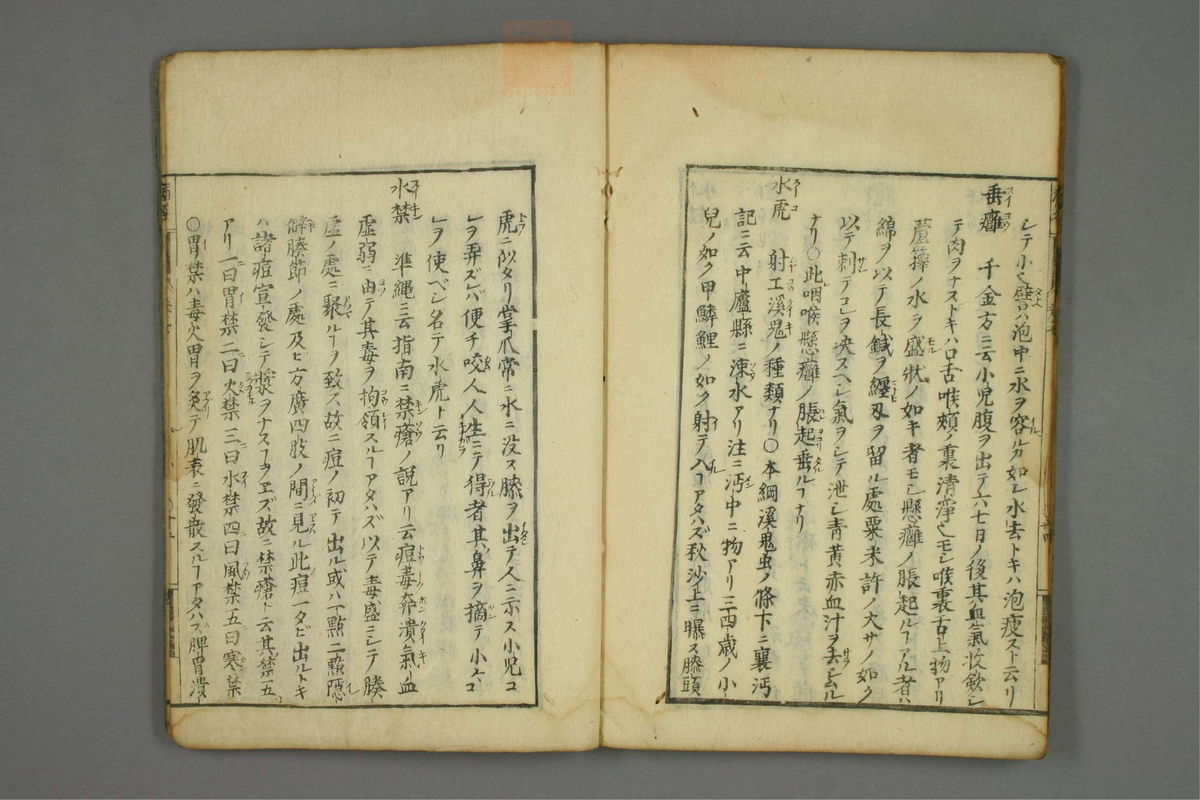 レテ小ク譬ハ泡中ニ水ヲ容ル分如シ水去トキハ泡瘦スト云リ
垂癰　千金方ニ云小兒腹ヲ出テ六七日ノ後其血氣收斂シ
テ肉ヲナストキハ口舌喉頰ノ裏清淨也モシ喉裏舌上物アリ
蘆籜ノ水ヲ盛狀ノ如キ者モシ懸癰ノ脹起ルヿアル者ハ
綿ヲ以テ長鍼ヲ纒刄ヲ留ル處粟米許ノ大サノ如ク
以テ刺テコレヲ决スヘシ氣ヲシテ泄シ青黃赤血汁ヲ去シムル
ナリ〇此咽喉懸癰ノ脹起垂ルヿナリ
水虎　射工溪鬼ノ種類ナリ〇本綱溪鬼虫ノ條下ニ襄沔
記ニ云中廬縣ニ涑水アリ注ニ沔中ニ物アリ三四歲ノ小
兒ノ如ク甲鱗鯉ノ如ク射テ入ヿアタハズ秋沙上ニ曝ス膝頭
虎ニ似タリ掌爪常ニ水ニ沒ス膝ヲ出テ人ニ示ス小兒コ
レヲ弄ズレバ便チ咬人人生ニテ得者其鼻ヲ摘テ小々コ
レヲ使ベシ名テ水虎ト云リ
水禁　準繩ニ云指南ニ禁瘡ノ說アリ云痘毒奔潰氣血
虛弱ニ由テ其毒ヲ拘領スルヿアタハズ以テ毒盛ニシテ腠
虛ノ處ニ聚ルヿヲ致ス故ニ痘ノ初テ出ル或ハ一點二點隱
觧腠節ノ處及ヒ方廣四肢ノ間ニ見ル此痘一タビ出ルトキ
ハ諸痘宣發シテ漿ヲナスヿヲヱズ故ニ禁瘡ト云其禁五
アリ一曰胃禁二曰火禁三曰水禁四曰風禁五曰寒禁
〇胃禁ハ毒火胃ヲ炙テ肌表ニ發散スルヿアタハズ脾胃潰